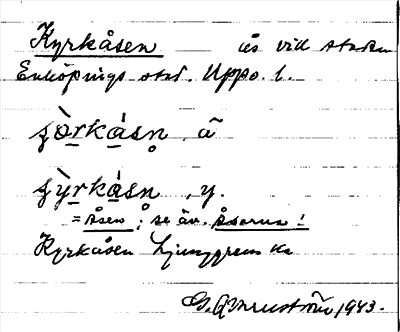 Kyrkåsen ås vid staden
Enköpings stad. Upps. l.
ʂɔ̀rkåsn̥ ä
ʂỳrkåsn y.
= Åsen; se äv. Åsarna!
Kyrkåsen Ljunggrens Ka
1943.